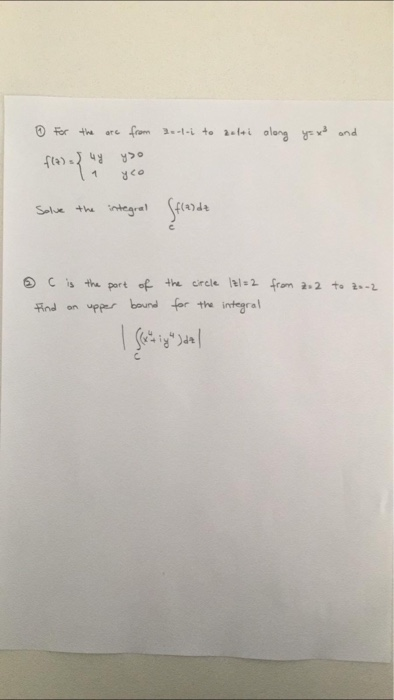 ① For the arc from z=-1-i to z=1+i along y=x³ and
f(z)={ 4y y>0
1 y<0
Solve the integral ∫f(z)dz
C
② C is the part of the circle |z|=2 from z=2 to z=-2
Find an upper bound for the integral
| ∫(x⁴+iy⁴)dz |
C